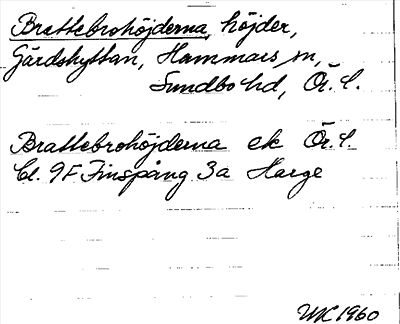 Brattebrohöjderna, höjder,
Gårdshyttan, Hammars sn,
Sundbo hd, Ör. l.
Brattebrohöjderna ek Ör. l.
bl. 9F Finspång 3a Harge
1960